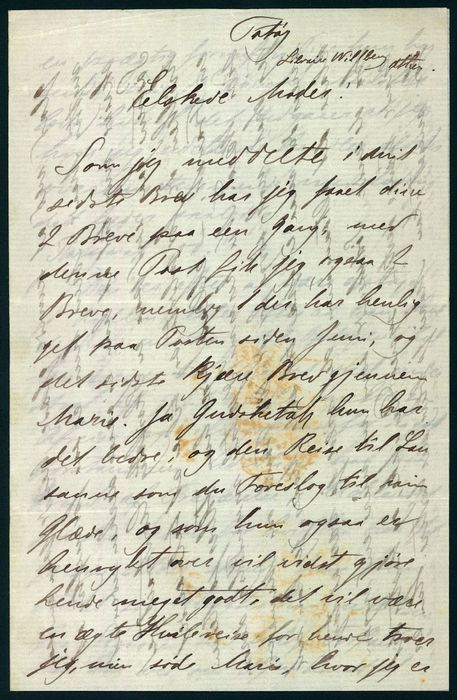 Elskede Moder!
Som jeg meddelte i mit
sidste Brev har jeg faaet dine
2 Breve paa een Gang, med
denne Post fik jeg ogsaa 2
Breve, nemlig 1 der har henlig
get paa Posten siden Juni, og
det sidste kjære Brev gjennem
Marie. Ja Gudsketak hun har
det bedre, og den Reise til Lau
sanne som du Foreslog til min
Glæde, og som hun ogsaa er
henrykt over vil vidst gjøre
hende meget godt, det vil være
en ægte Hvilereise for hende troer
jeg, min søde Marie, hvor jeg er